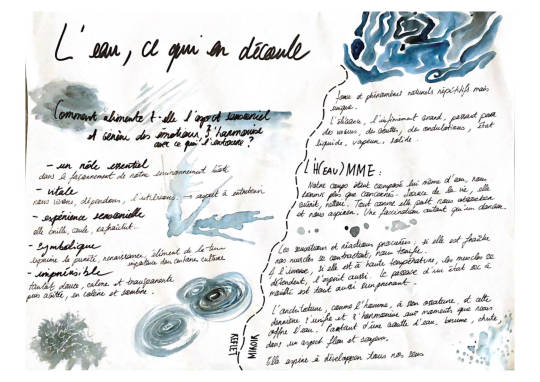 L'eau, ce qui en découle
Comment alimente t-elle l'aspect sensoriel
et génère des émotions, s'harmonise
avec ce qui l'entoure ?
- un rôle essentiel
dans le façonnement de notre environnement
- vitale
nous vivons, dépendons, l'utilisons → aspect à entretenir
- expérience sensorielle
elle brille, coule, rafraîchit.
- Symbolique
exprime la pureté, renaissance, élément de la
dans certaine culture
- imprévisible
Tantôt douce, calme et transparente
puis agitée, en colère et sombre.
REFLET
MIROIR
Forme et phénomènes naturels répétitifs mais
unique.
L'aléatoire, l'infiniment grand, passant par
des vagues, des gouttes, des ondulations, état
liquide, vapeur, solide.
L'H(EAU)MME :
Notre corps étant composé lui même d'eau, nous
sommes plus que concerné. Source de la vie, elle
nourrit, nature. Tout comme elle peut nous
et nous aspirer. Une fascination autant qu'un danger.
Les sensations et réactions procurées, si elle est fraîche
nos muscles se contractent, nous tonifie.
A l'inverse, si elle est à haute température, les muscles se
détendent, l'esprit aussi. Le passage d'un état sec à
mouillé est tout aussi surprenant.
L'architecture, comme l'homme, à son ossature, et cette
dernière s'unifie et s'harmonise aux moments que nous
offre l'eau. Partant d'une goutte d'eau, brume, chute
dans un aspect flou et
Elle aspire à développer tous nos sens